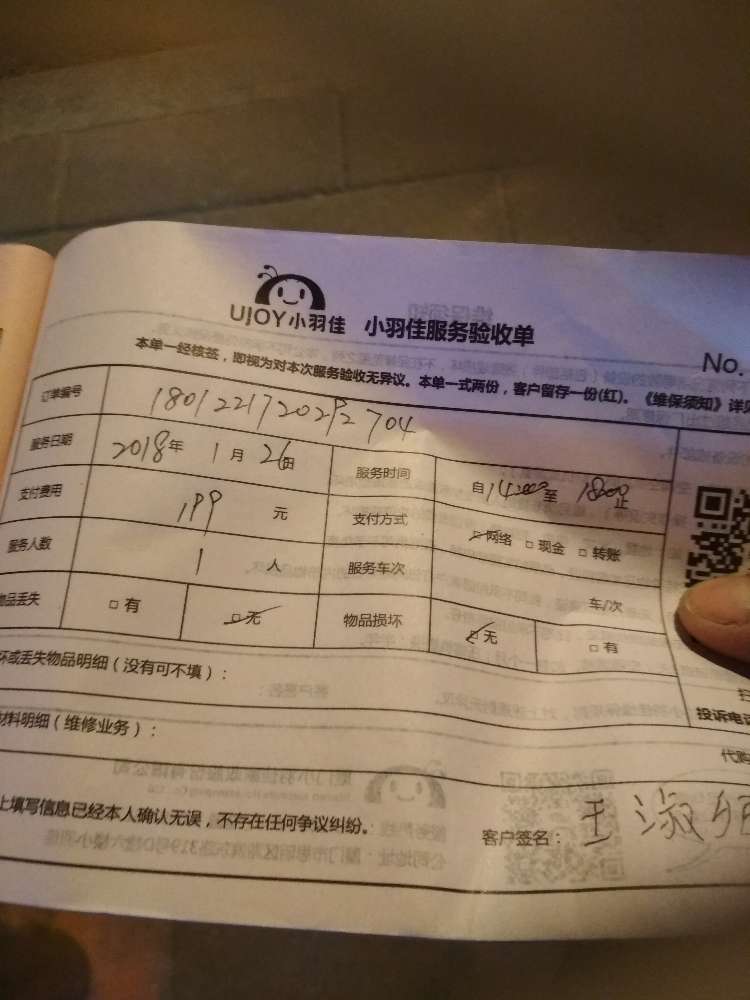 UJOY小羽佳 小羽佳服务验收单
No.
本单一经核签，即视为对本次服务验收无异议。本单一式两份，客户留存一份(红)。《维保须知》详见
订单编号 1801221720292704
服务日期 2018年 1月 26日 服务时间 自14:00至 18:00止
支付费用 199 元 支付方式 ☑网络 □现金 □转账
服务人数 1 人 服务车次 车/次
物品丢失 □有 ☑无 物品损坏 ☑无 □有
坏或丢失物品明细（没有可不填）：
材料明细（维修业务）：
投诉电话
代购
上填写信息已经本人确认无误，不存在任何争议纠纷。
客户签名：王淑